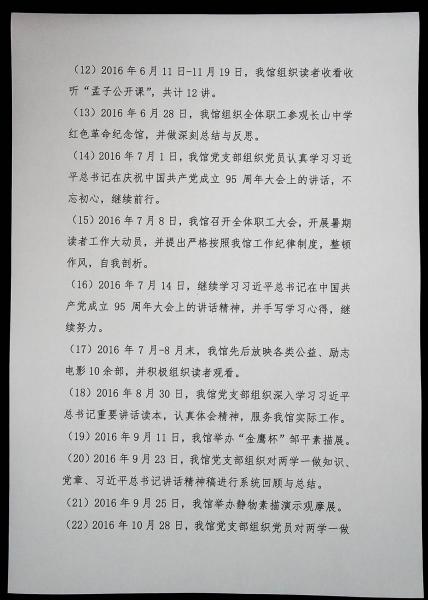 （12）2016 年 6 月 11 日-11 月 19 日，我馆组织读者收看收
听“孟子公开课”，共计 12 讲。
（13）2016 年 6 月 28 日，我馆组织全体职工参观长山中学
红色革命纪念馆，并做深刻总结与反思。
（14）2016 年 7 月 1 日，我馆党支部组织党员认真学习习近
平总书记在庆祝中国共产党成立 95 周年大会上的讲话，不
忘初心，继续前行。
（15）2016 年 7 月 8 日，我馆召开全体职工大会，开展暑期
读者工作大动员，并提出严格按照我馆工作纪律制度，整顿
作风，自我剖析。
（16）2016 年 7 月 14 日，继续学习习近平总书记在中国共
产党成立 95 周年大会上的讲话精神，并手写学习心得，继
续努力。
（17）2016 年 7 月-8 月末，我馆先后放映各类公益、励志
电影 10 余部，并积极组织读者观看。
（18）2016 年 8 月 30 日，我馆党支部组织深入学习习近平
总书记重要讲话读本，认真体会精神，服务我馆实际工作。
（19）2016 年 9 月 11 日，我馆举办“金鹰杯”邹平素描展。
（20）2016 年 9 月 23 日，我馆党支部组织对两学一做知识、
党章、习近平总书记讲话精神稿进行系统回顾与总结。
（21）2016 年 9 月 25 日，我馆举办静物素描演示观摩展。
（22）2016 年 10 月 28 日，我馆党支部组织党员对两学一做